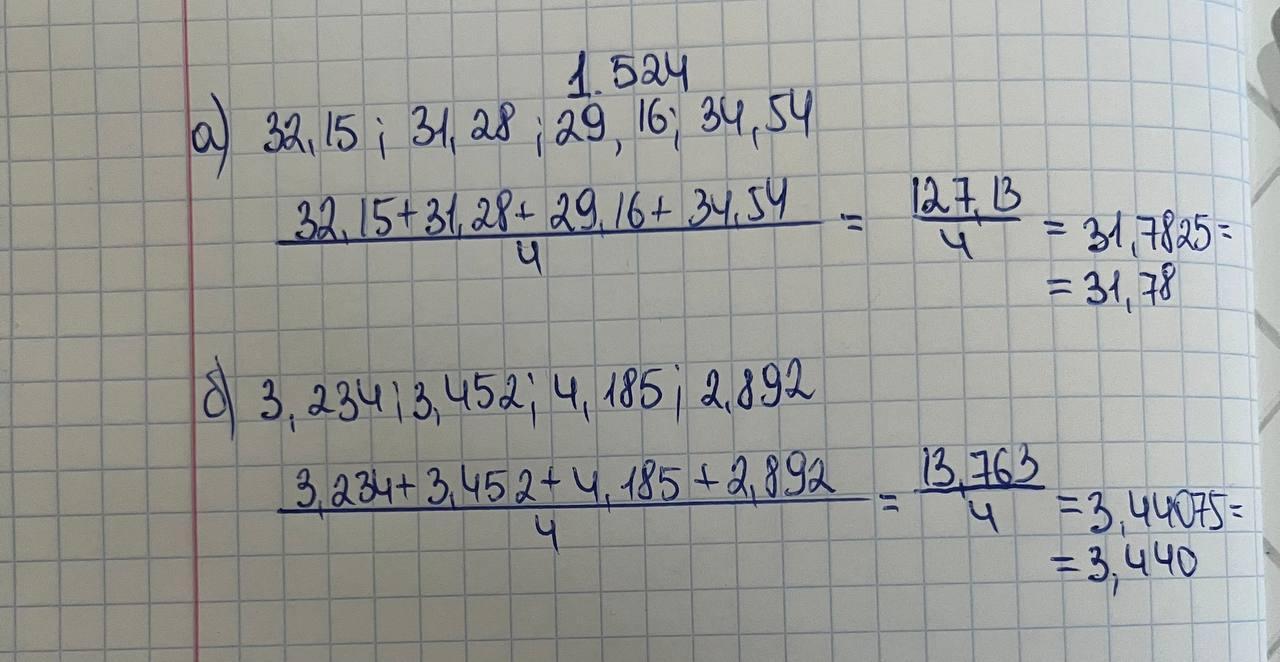 1.524
а) 32,15; 31,28; 29,16; 34,54
32,15+31,28+29,16+34,54 / 4 = 127,13 / 4 = 31,7825=
= 31,78
б) 3,234; 3,452; 4,185; 2,892
3,234+3,452+4,185+2,892 / 4 = 13,763 / 4 = 3,44075=
= 3,440